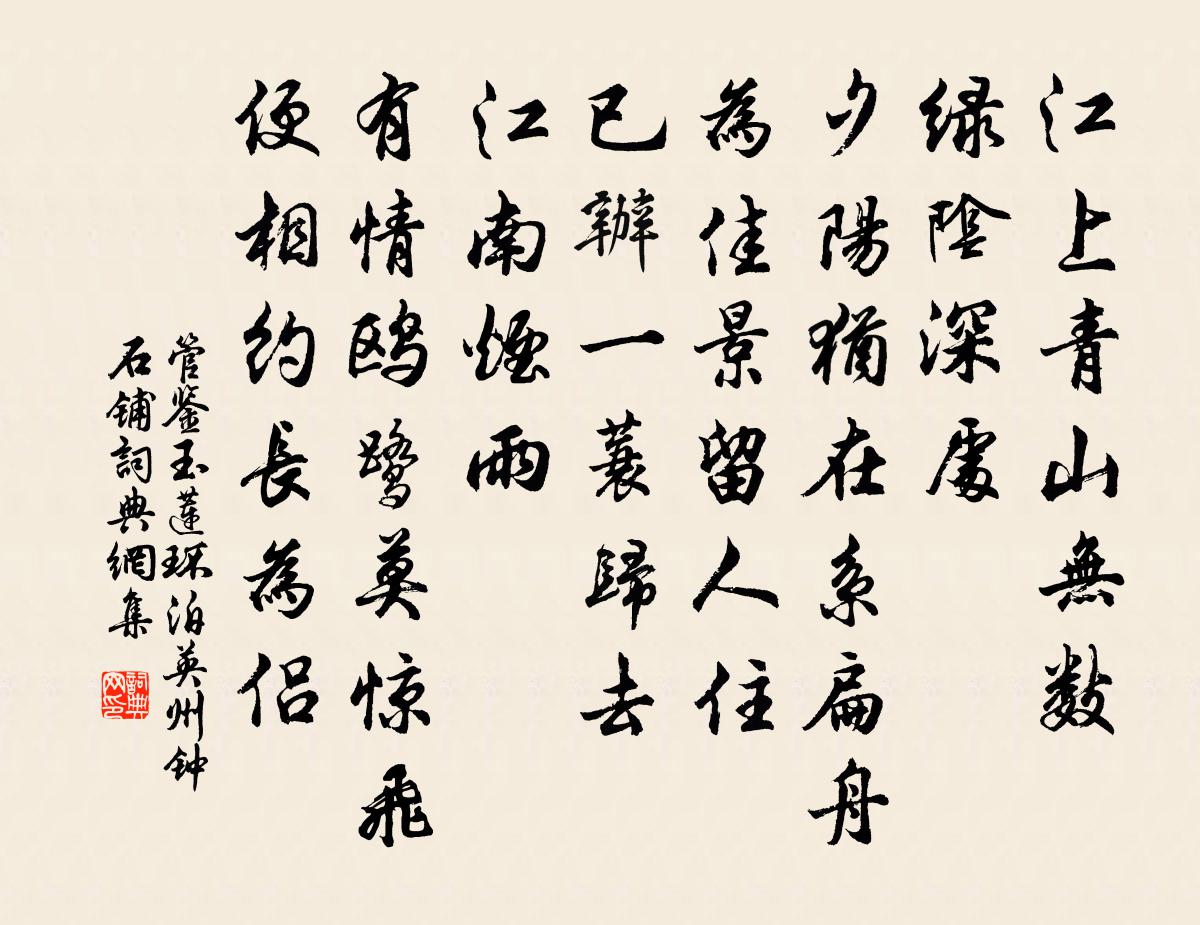 江上青山無数
緑陰深處
夕陽猶在系扁舟
為佳景留人住
已辦一蓑歸去
江南煙雨
有情鷗鷺莫惊飛
便相約長為侶
管鉴玉莲环泊英州钟
石鋪詞典網集
詞典网印